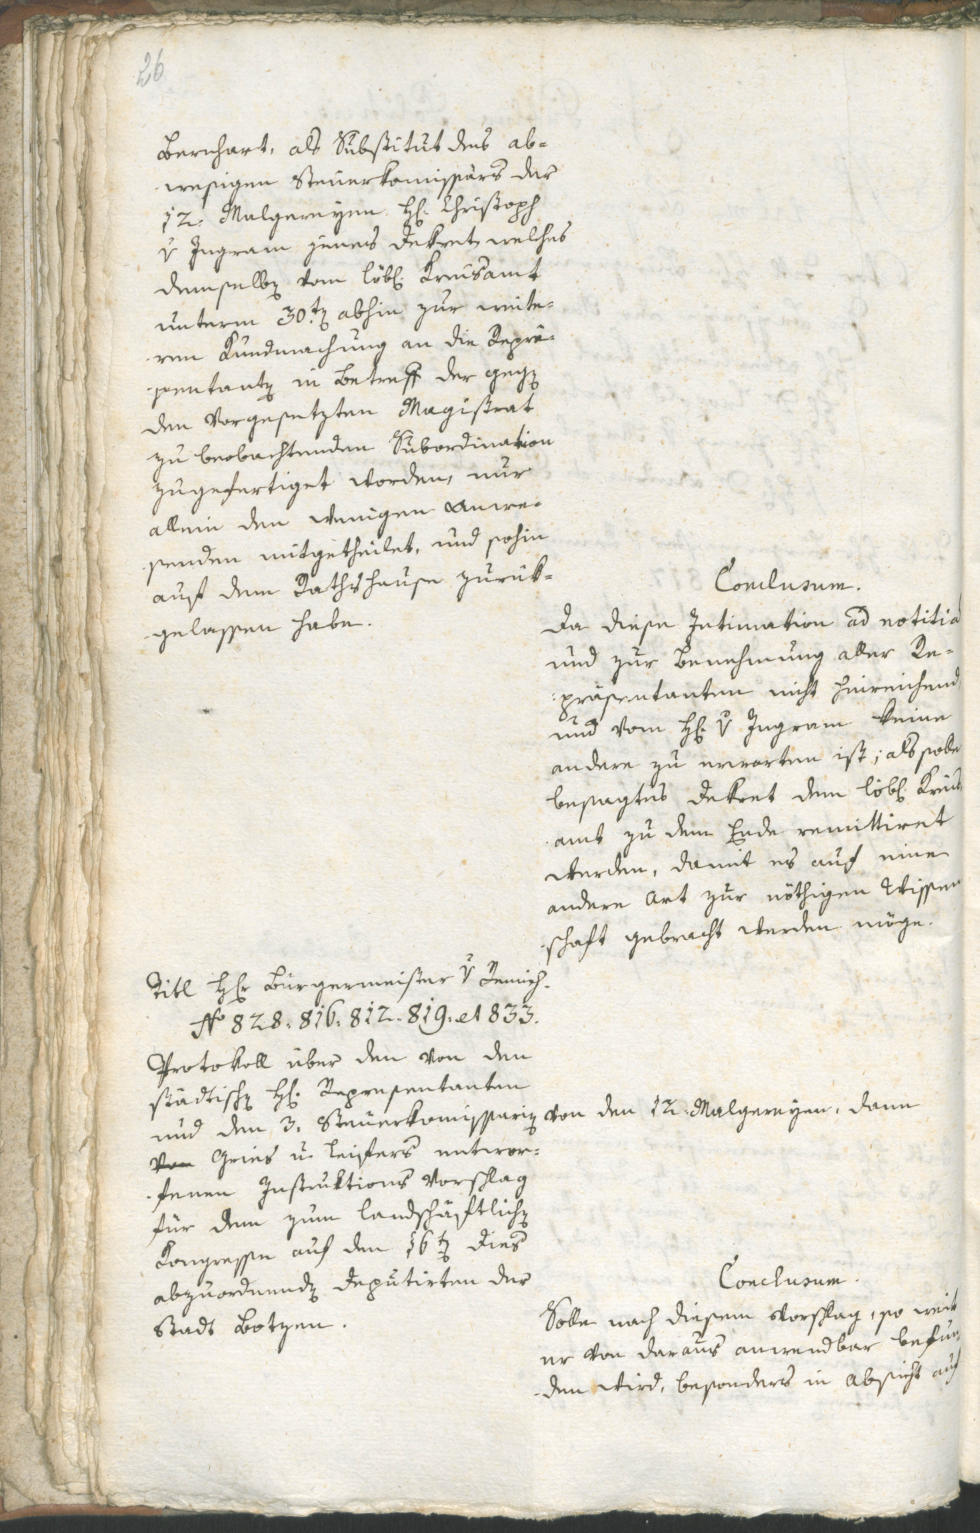 26
Bernhart, als Substitut des ab-
wesigen Steuerkomissärs der
12. Malgereyen H: Christoph
v Ingram jenes Dekret welches
demselbg vom löbl: Kreisamt
unterm 30.tg abhin zur weite-
ren Kundmachung an die Reprä-
sentantg in Betreff der gegg
den Vorgesetzten Magistrat
zu beobachtenden Subordination
zugefertiget worden, nur
allein den wenigen Anwe-
senden mitgetheilet, und sohin
auf dem Rathshause zurük-
gelassen habe.
Conclusum.
Da diese Intimation ad notitia
und zur Benehmung aller Re-
präsentanten nicht hinreichend
und vom H: v Ingram keine
andere zu erwarten ist; als solle
besagtes Dekret dem löbl: Kreis
amt zu dem Ende remittiret
werden, damit es auf eine
andere Art zur nöthigen Wissen
schaft gebracht werden möge.
Titl H: Bürgermeister v Remich.
No 828. 816. 812. 819. et 833.
Protokoll über den von den
städtischg H: Representanten
und den 3. Steuerkomissarig von den 12. Malgereyen, dann
von Gries u. Leifers entwor-
fenen Instruktions Vorschlag
für den zum landschäftlichg
Kongresse auf den 16tg dies
abzuordnendg Deputirten der
Stadt Botzen.
Conclusum.
Solle nach diesem Vorschlag, so weit
er von daraus anwendbar befun-
den wird, besonders in Absicht auf